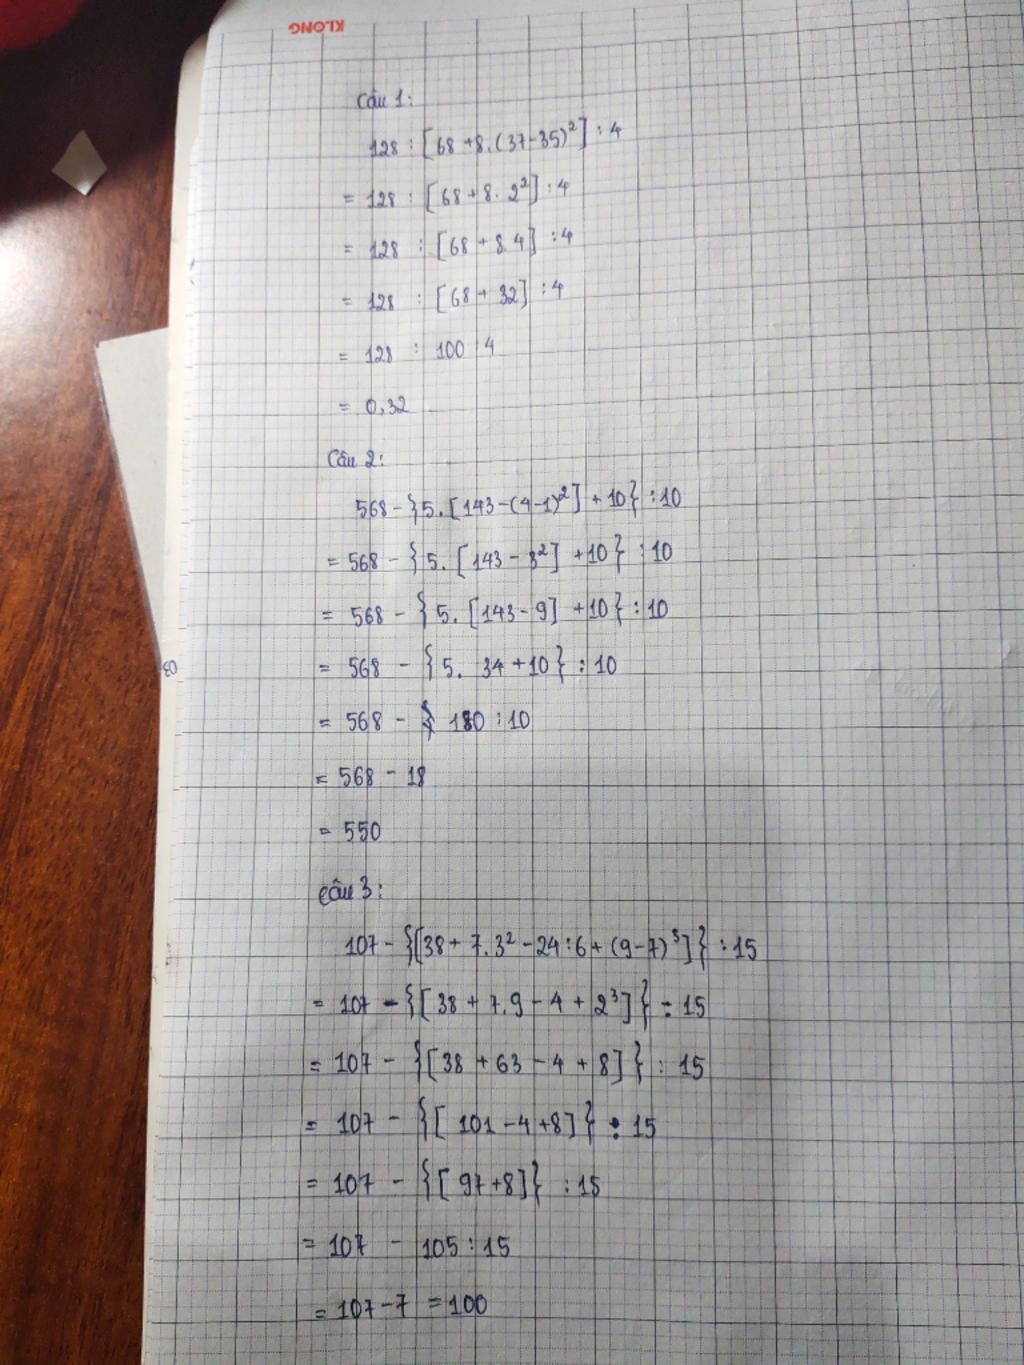 KLONG
Câu 1:
128 : [68 + 8.(37-35)²] : 4
= 128 : [68 + 8. 2²] : 4
= 128 : [68 + 8.4] : 4
= 128 : [68 + 32] : 4
= 128 : 100 : 4
= 0,32
Câu 2:
568 - {5.[143-(4-1)²] + 10} : 10
= 568 - {5. [143 - 3²] + 10} : 10
= 568 - {5. [143 - 9] + 10} : 10
= 568 - {5. 34 + 10} : 10
= 568 - 180 : 10
= 568 - 18
= 550
Câu 3:
107 - {[38 + 7.3² - 24:6 + (9-7)³]} : 15
= 107 - {[38 + 7.9 - 4 + 2³]} : 15
= 107 - {[38 + 63 - 4 + 8]} : 15
= 107 - {[ 101 - 4 + 8]} : 15
= 107 - {[ 97 + 8]} : 15
= 107 - 105 : 15
= 107 - 7 = 100